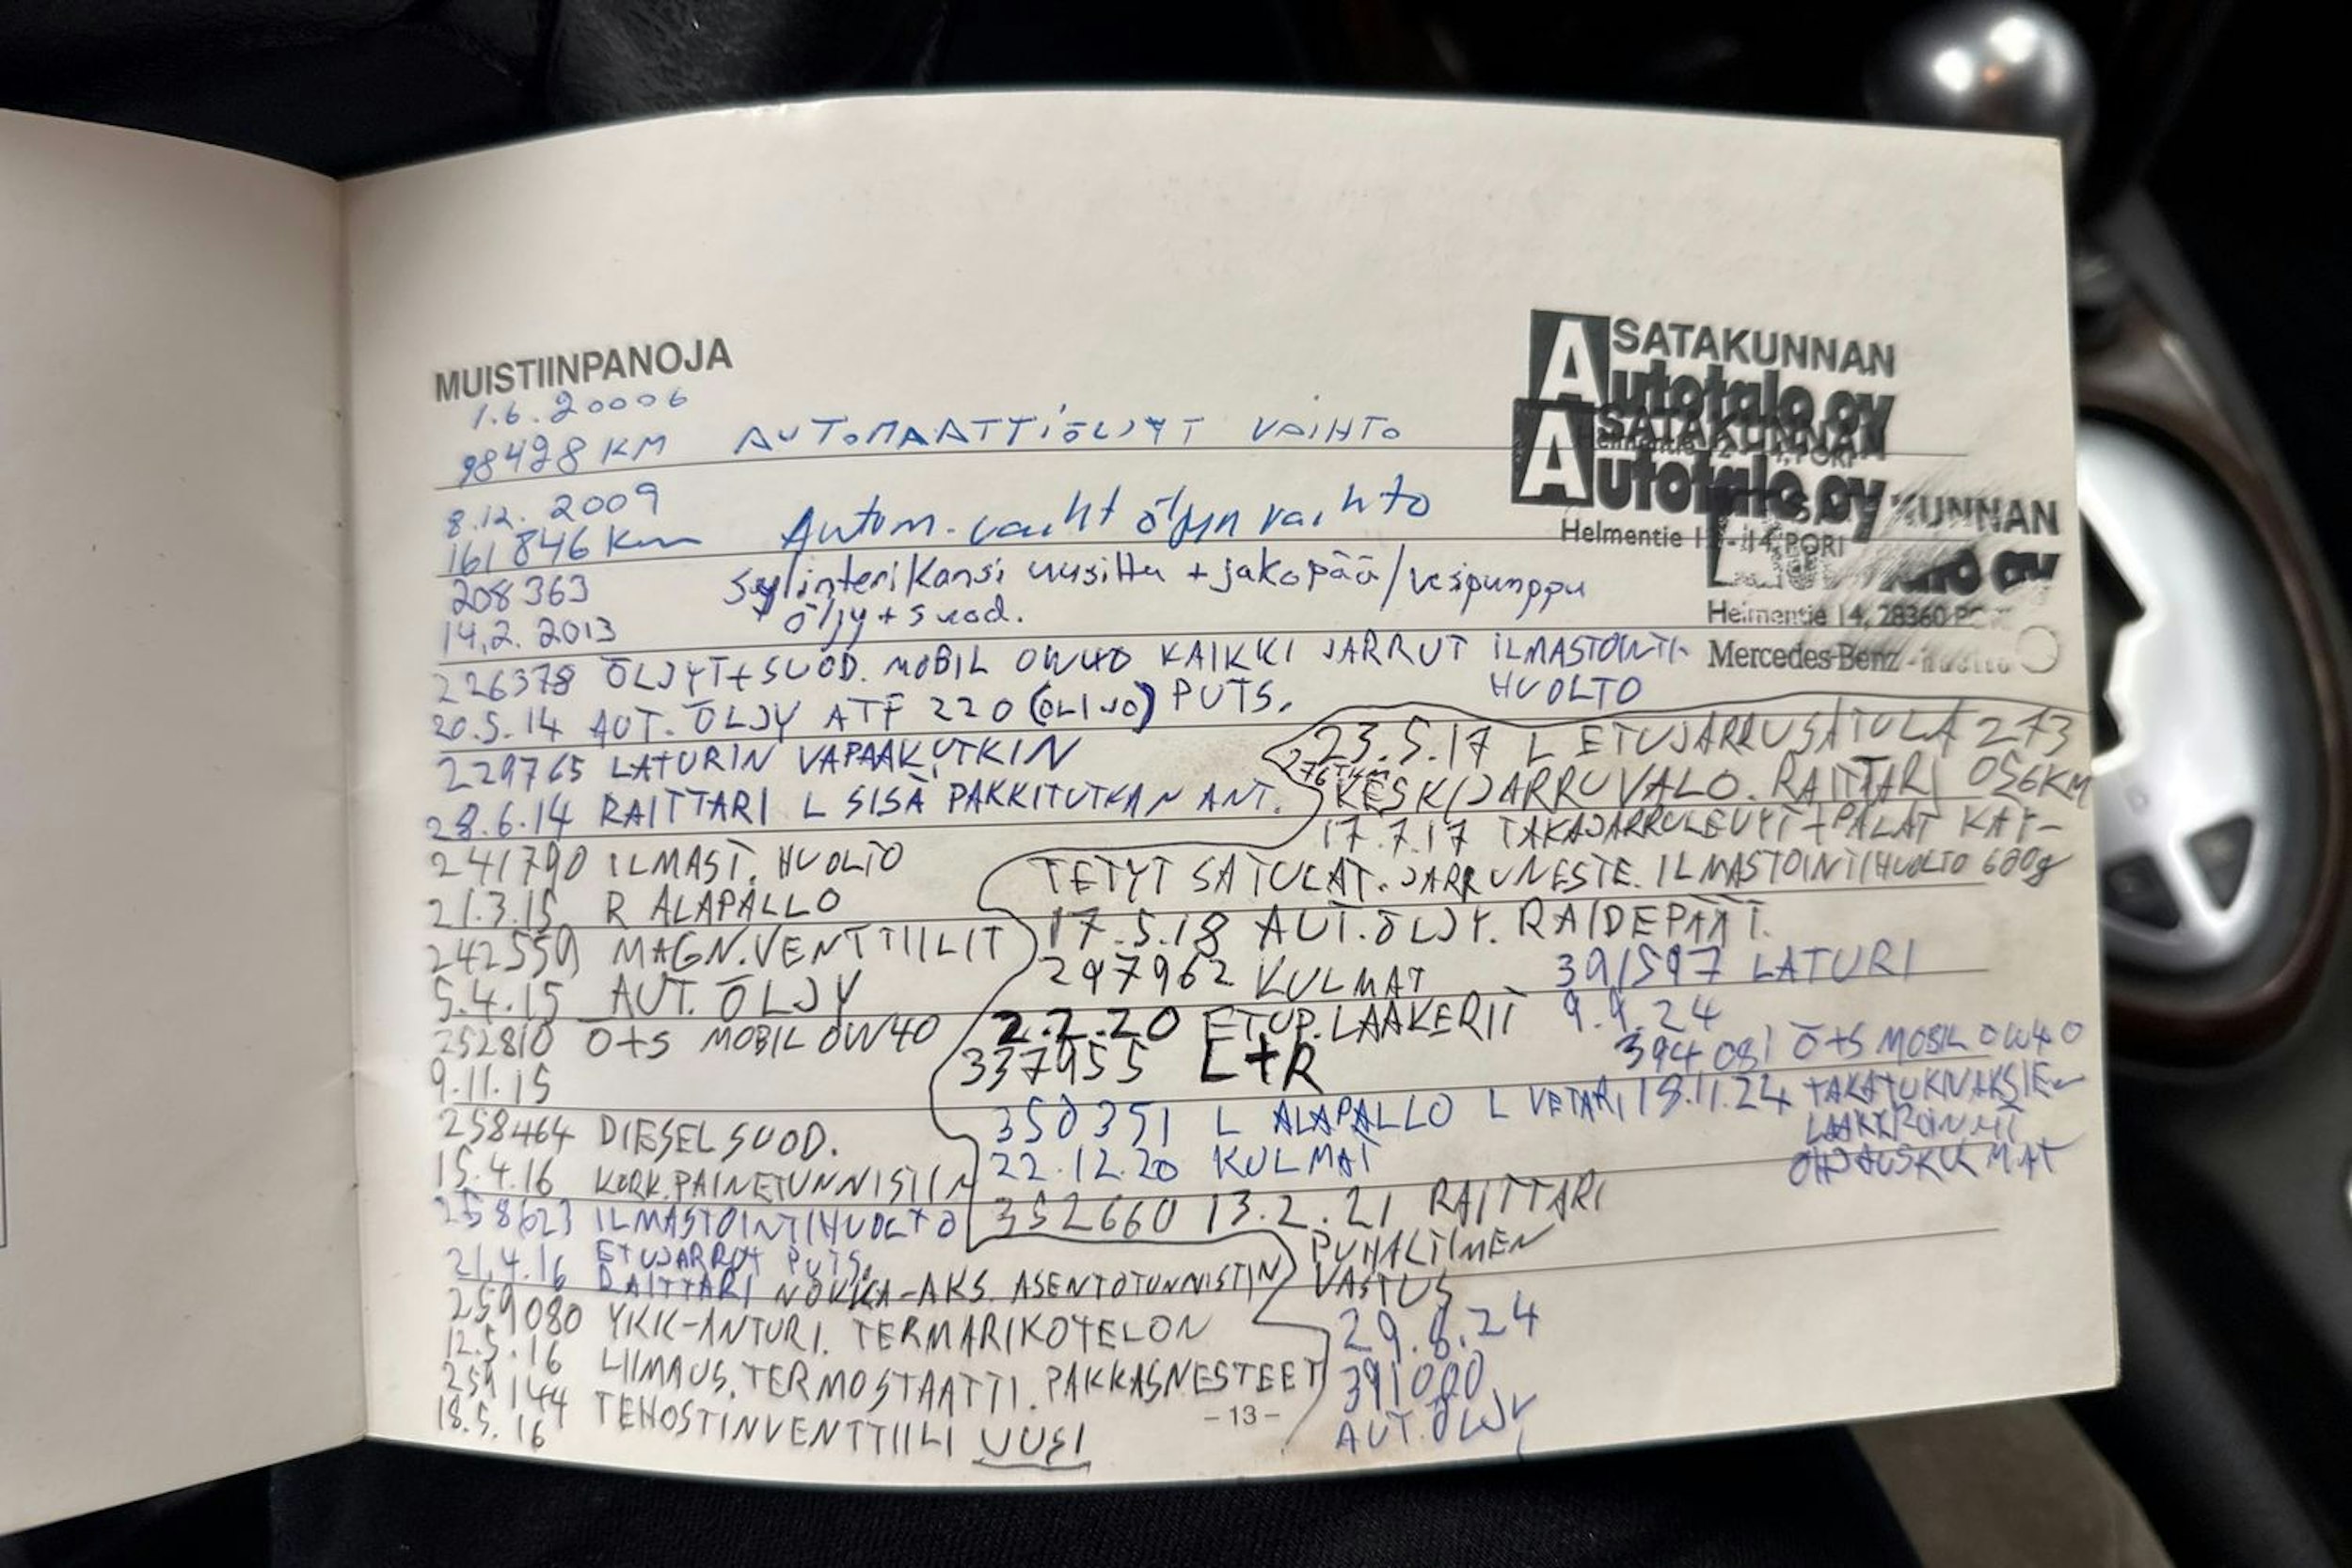 MUISTIINPANOJA
1.6.20006
98428 KM AUTOMAATTIÖLJYT VAIHTO
8.12. 2009
161 846 Km Autom-vaiht öljyn vaihto
208 363 Sylinterikansi uusittu + jakopää/vesipumppu
14.2. 2013 öljy + suod.
226378 ÖLJYT+SUOD. MOBIL 0W40 KAIKKI JARRUT ILMASTOINTI-
HUOLTO
20.5.14 AUT. ÖLJY ATF 220 (ÖLJYÖ) PUTS.
229765 LATURIN VAPAAKYTKIN
28.6.14 RAITTARI L SISÄ PAKKITUTKAN ANT.
241790 ILMAST. HUOLTO
21.3.15 R ALAPALLO
242559 MAGN.VENTTIILIT
5.4.15 AUT. ÖLJY
252810 Ö+S MOBIL 0W40
9.11.15
258464 DIESELSUOD.
15.4.16 KORK.PAINETUNNISTIN
258623 ILMASTOINTIHUOLTO
21.4.16 ETUJARRUT PUTS.
RAITTARI NOKKA-AKS. ASENTOTUNNISTIN
259080 YKK-ANTURI. TERMARIKOTELON
12.5.16 LIIMAUS. TERMOSTAATTI. PAKKASNESTEET
259144
18.5.16 TEHOSTINVENTTIILI UUSI
23.5.17 L ETUJARRUSATULA 273
KESKIJARRUVALO. RAITTARI 056KM
17.7.17 TAKAJARRULEVYT+PALAT KÄY-
TETYT SATULAT. JARRUNESTE. ILMASTOINTIHUOLTO 600g
17.5.18 AUT.ÖLJY. RAIDEPÄÄT.
297962 KULMAT
2.2.20 ETUP. LAAKERIT
337955 L+R
350351 L ALAPALLO L VETARI
22.12.20 KULMAT
352660 13.2.21 RAITTARI
PUHALTIMEN
VASTUS
29.8.24
391000
AUT. ÖLJY
391597 LATURI
9.9.24
394081 Ö+S MOBIL 0W40
18.11.24 TAKATUKIVARSIEN
LAAKEROINNIT
OHJAUSKULMAT
A SATAKUNNAN
Autotalo oy
A SATAKUNNAN
Autotalo oy
Helmentie 12-14, PORI
KUNNAN
Helmentie 14, 28360
Mercedes-Benz -huolto
- 13 -